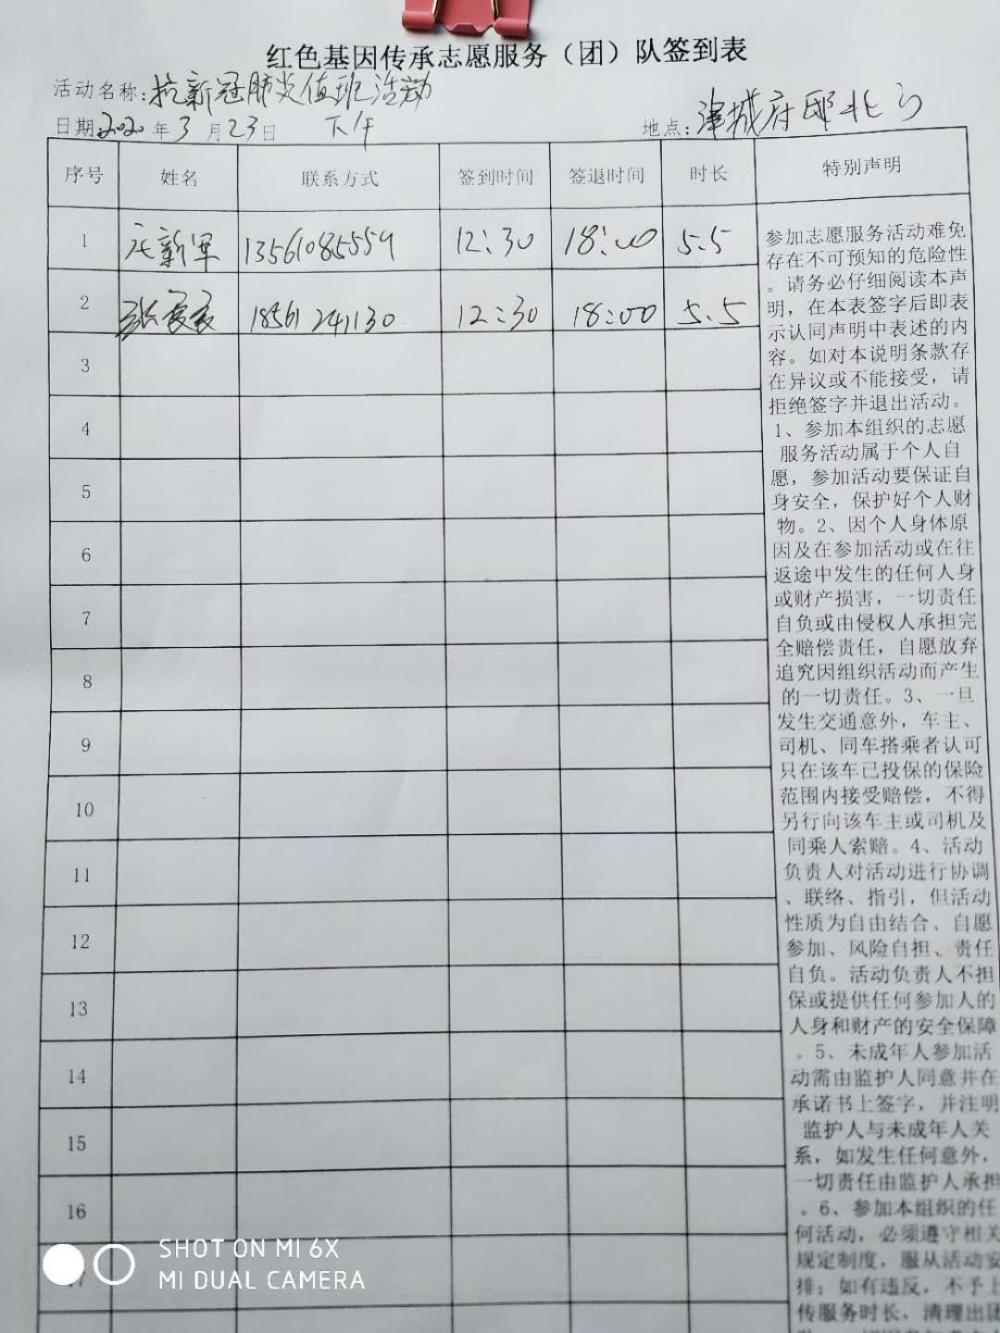 红色基因传承志愿服务（团）队签到表
活动名称:抗新冠肺炎值班活动
日期2020年3月23日 下午 地点:津城府邸北门
序号 姓名 联系方式 签到时间 签退时间 时长 特别声明
1 新军 13561085559 12:30 18:00 5.5
2 张 18561241130 12:30 18:00 5.5
3
4
5
6
7
8
9
10
11
12
13
14
15
16
17
参加志愿服务活动难免
存在不可预知的危险性
。请务必仔细阅读本声
明，在本表签字后即表
示认同声明中表述的内
容。如对本说明条款存
在异议或不能接受，请
拒绝签字并退出活动。
1、参加本组织的志愿
服务活动属于个人自
愿，参加活动要保证自
身安全，保护好个人财
物。2、因个人身体原
因及在参加活动或在往
返途中发生的任何人身
或财产损害，一切责任
自负或由侵权人承担完
全赔偿责任，自愿放弃
追究因组织活动而产生
的一切责任。3、一旦
发生交通意外，车主、
司机、同车搭乘者认可
只在该车已投保的保险
范围内接受赔偿，不得
另行向该车主或司机及
同乘人索赔。4、活动
负责人对活动进行协调
、联络、指引，但活动
性质为自由结合、自愿
参加、风险自担、责任
自负。活动负责人不担
保或提供任何参加人的
人身和财产的安全保障
。5、未成年人参加活
动需由监护人同意并在
承诺书上签字，并注明
监护人与未成年人关
系，如发生任何意外，
一切责任由监护人承担
。6、参加本组织的任
何活动，必须遵守相关
规定制度，服从活动安
排；如有违反，不予上
传服务时长，清理出团
SHOT ON MI 6X
MI DUAL CAMERA